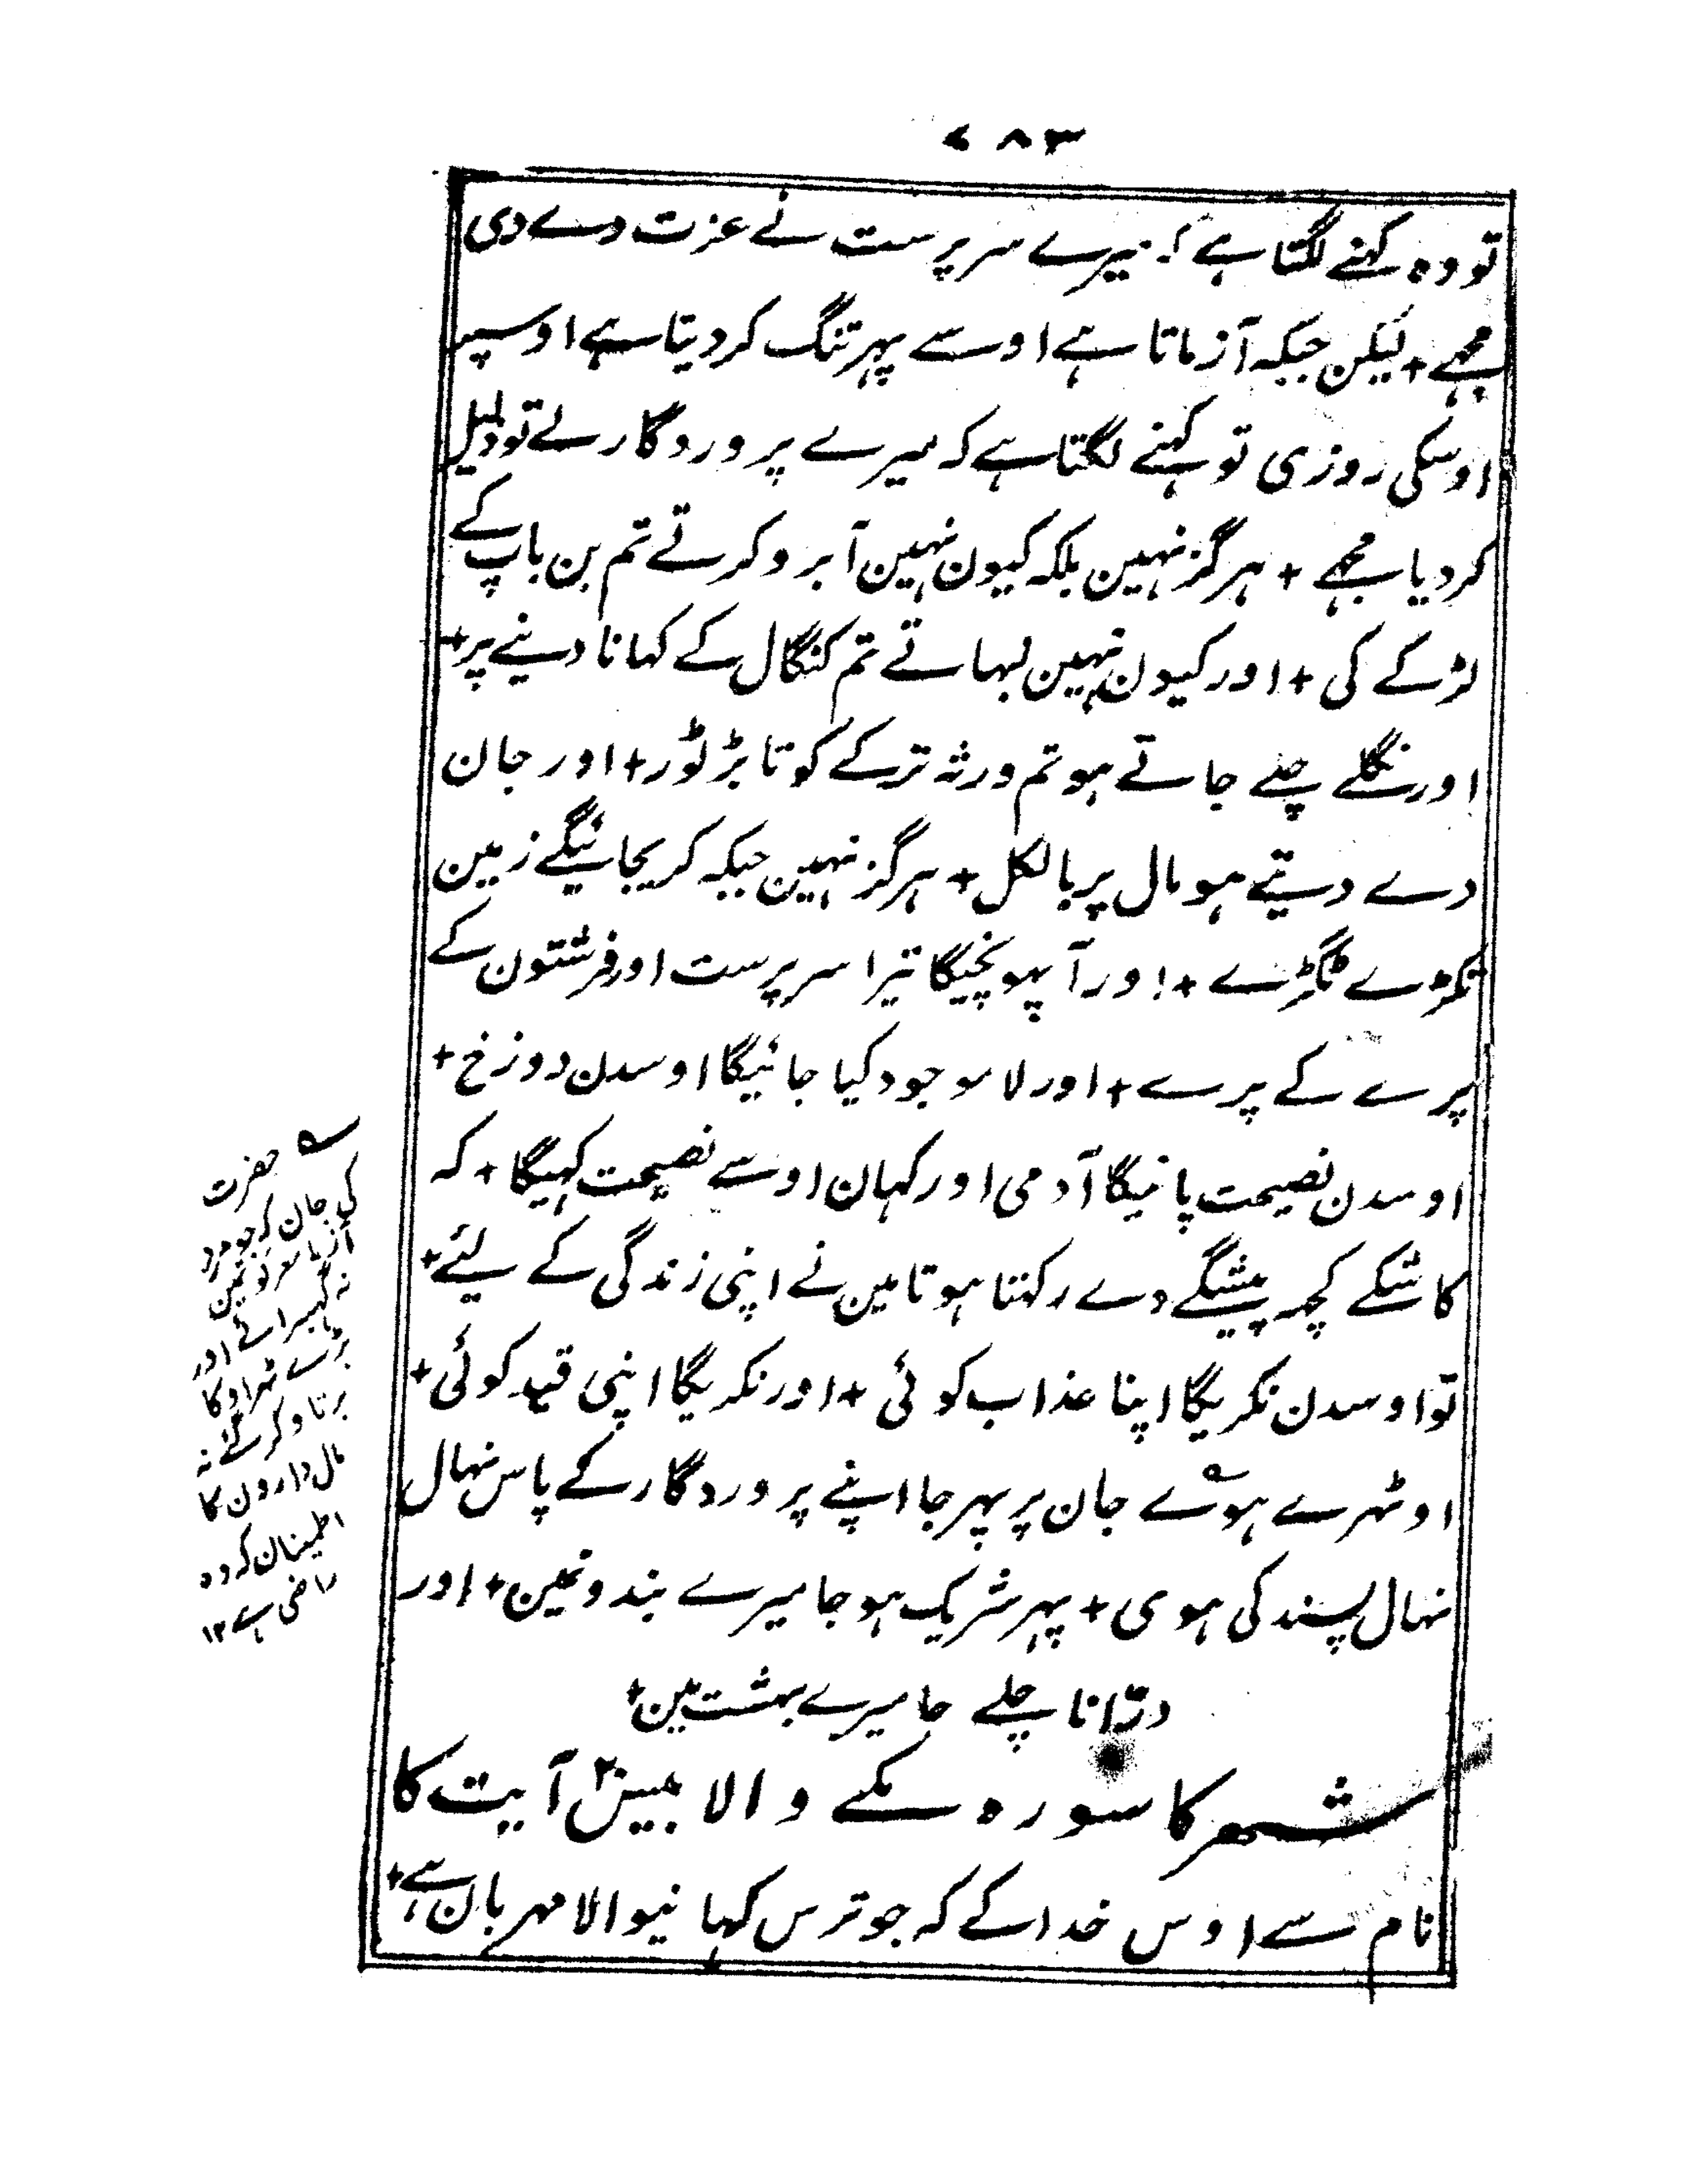 ۷۸۳
تو وہ کہنے لگتا ہے کہ میرے سرپرست نے عزت دے دی
مجھے + لیکن جبکہ آزماتا ہے اوسے پہر تنگ کردیتا ہے اوسپر
اوسکی روزی تو کہنے لگتا ہے کہ میرے پروردگار نے تو ذلیل
کردیا مجھے + ہرگز نہین بلکہ کیون نہین آبرو کرتے تم بن باپ کے
لڑکے کی + اور کیون نہین لبہاتے تم کنگال کے کہانا دینے پر +
اور نگلے چلے جاتے ہو تم ورثہ ترکے کو تابڑ توڑ + اور جان
دے دیتے ہو مال پر بالکل + ہرگز نہین جبکہ کریجائیگے زمین
ٹکڑے ٹکڑے + اور آ پہونچیگا تیرا سرپرست اور فرشتون کے
پرے کے پرے + اور لا موجود کیا جائیگا اوسدن دوزخ +
اوسدن نصیحت پائیگا آدمی اور کہان اوسے نصیحت کہیگا + کہ
کاشکے کچہ پیشگے دے رکہتا ہوتا مین نے اپنی زندگی کے لیئے +
تو اوسدن نکریگا اپنا عذاب کوئی + اور نکریگا اپنی قید کوئی +
او ٹہرے ہوے جان پر پہر جا اپنے پروردگار کے پاس نہال
نہال پسند کی ہوی + پہر شریک ہو جا میرے بندونمین + اور
درّانا چلے جا میرے بہشت مین +
شہر کا سورہ مکے والا بیس ۲۰ آیت کا
نام سے اوس خدا کے کہ جو ترس کہانیوالا مہربان ہے +
حضرت
کی جان کہ جو مرد
نہ گہبرائے اور
بڑے ٹہراو کا
برتاو کرے نہ
مال دارون کا
اطمینان کہ وہ
راضی ہے ۱۲